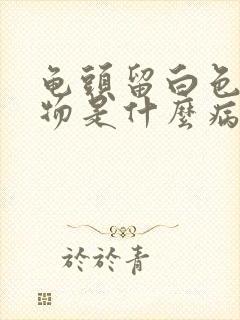 龟頭留白色
物是什麼病
於於青